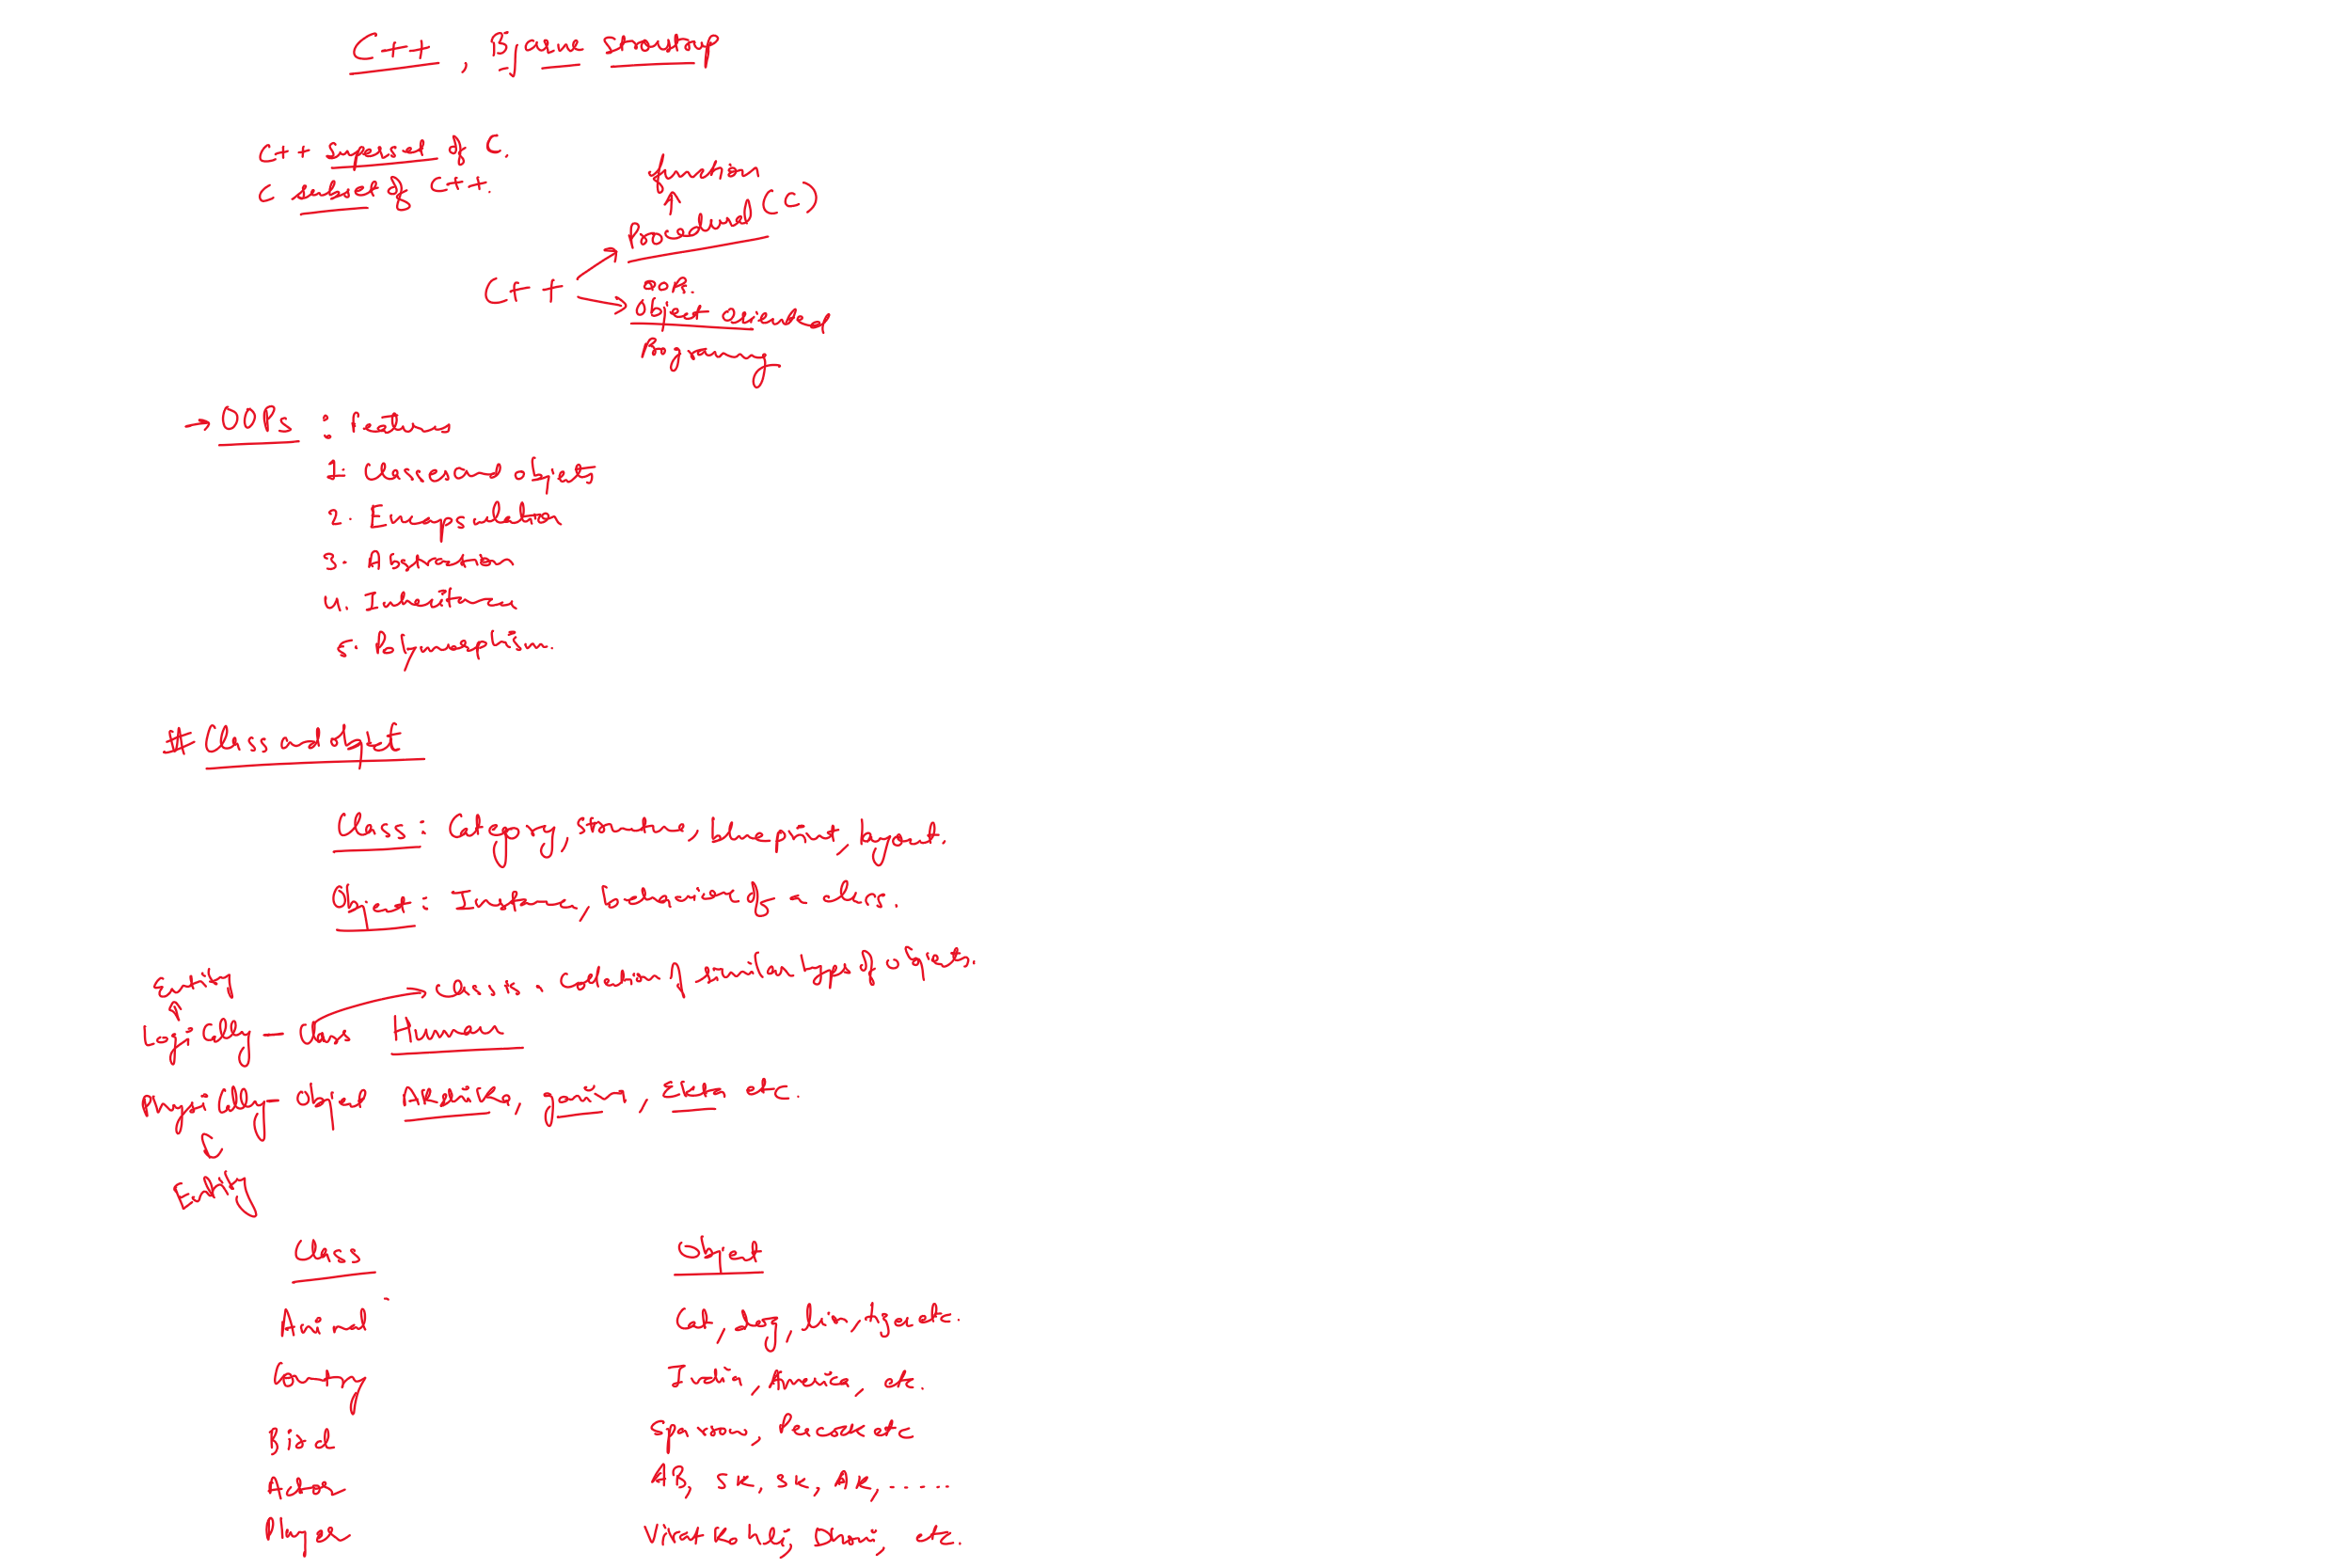 C++, Bjarne stroustrup
C++ superset of C.
C subset of C++.
function
↑
Procedural (C)
C++
OOPs.
Object Oriented
Programming
→ OOPs : features
1. Classes and objects
2. Encapsulation
3. Abstraction
4. Inheritance
5. Polymorphism.
# Class and object
Class : Category, structure, blueprint, layout.
Object : Instance, behaviour of a class.
Entity
→ class is a collection of similar types of objects.
Logically - Class Human
Physically - Object Akshika, , Ekta etc.
Entity
Class Object
Animal Cat, dog, lion, tiger etc.
Country India, America, etc.
Bird Sparrow, Peacock etc
Actor AB, SK, SK, AK, .....
Player Virat Kohli, Dhoni, etc.